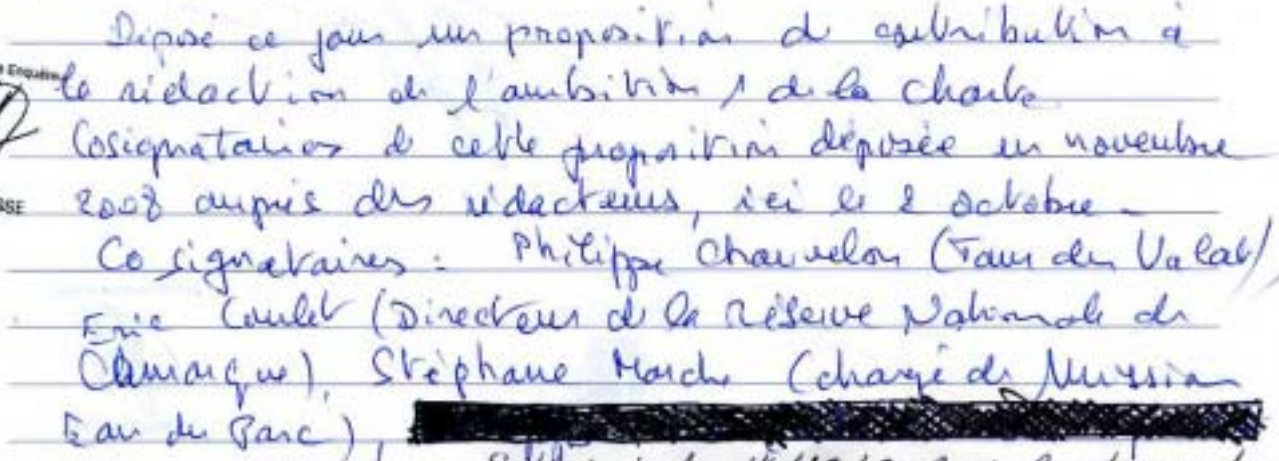 Déposé ce jour un proposition de contribution à
la rédaction de l'ambition 1 de la charte.
Cosignataires de cette proposition déposée en novembre
2008 auprès des rédacteurs, ici le 2 octobre -
Co signataires : Philippe Chauvelon (Tour du Valat)
Eric Coulet (Directeur de la Réserve Nationale de
Camargue), Stéphane Marche (chargé de Mission
Eau du Parc),